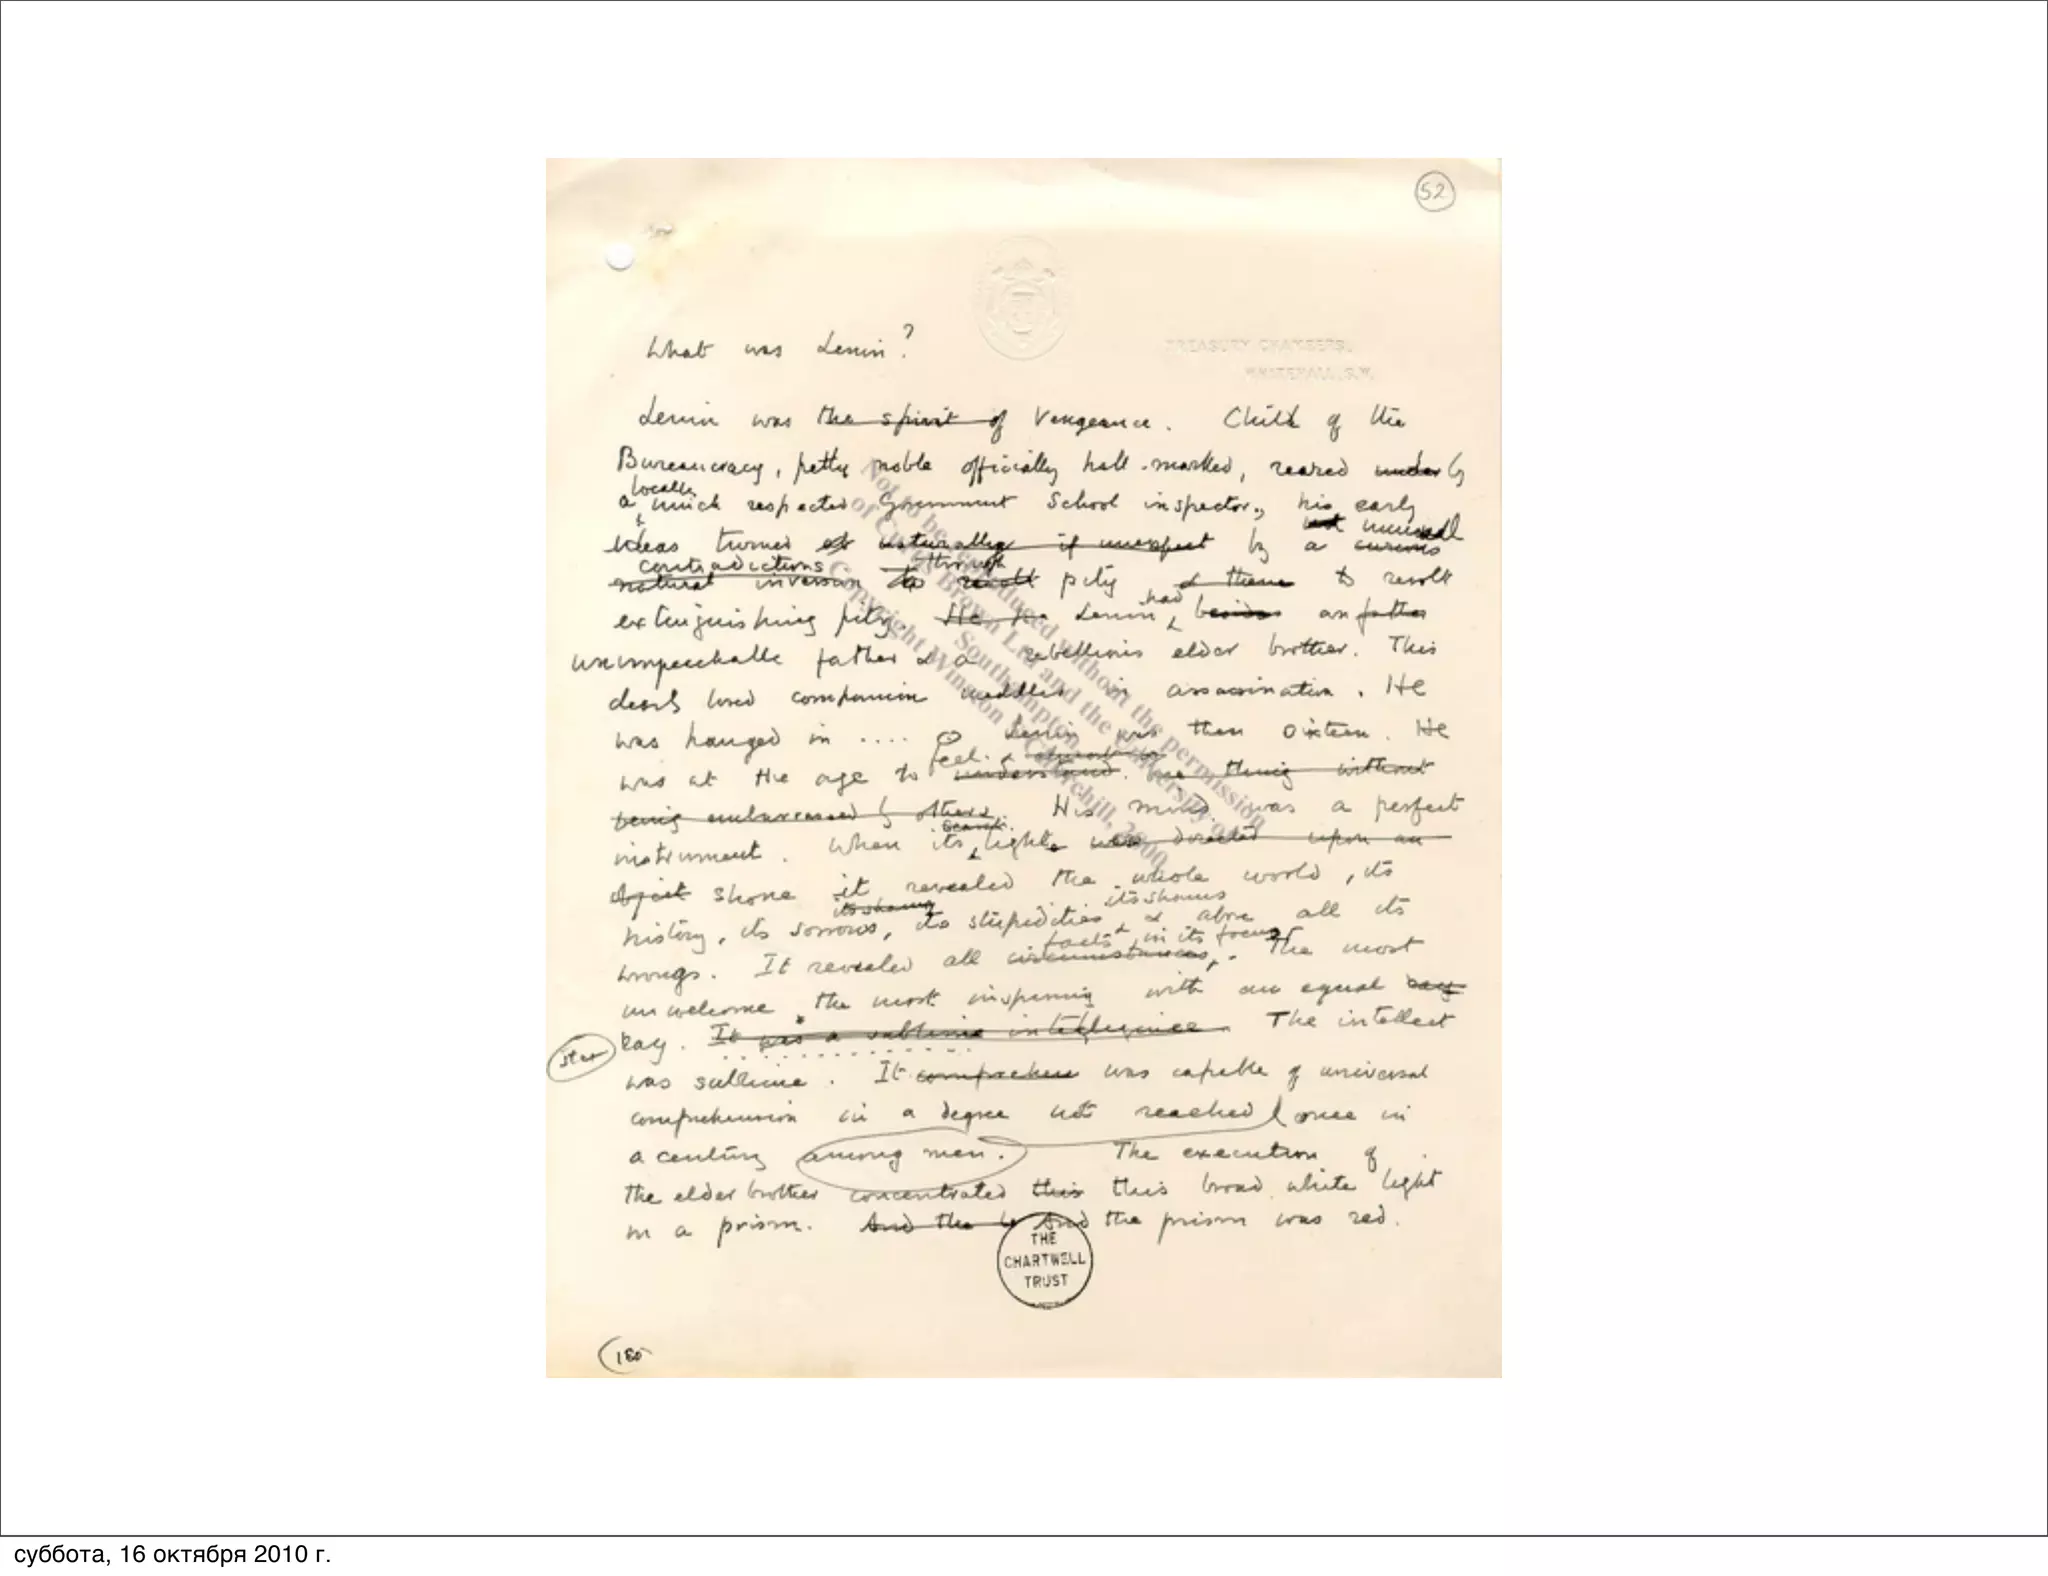 52
TREASURY CHAMBERS,
WHITEHALL, S.W.
What was Lenin?
Lenin was the spirit of Vengeance. Child of the
Bureaucracy, petty noble officially hall-marked, reared under by
locally
a much respected Government School inspector, his early
not unusual
ideas turned naturally if unexpect by a curious
contradictions through
natural inversion to revolt pity & thence to revolt
extinguishing pity. He Lenin had besides an father
unimpeachable father & a rebellious elder brother. This
dearly loved companion meddled in assassination. He
was hanged in .... Lenin was then sixteen. He
feel.
was at the age to understand. thing without
being embarrassed by others. His mind was a perfect
search
instrument. When its light was directed upon an
object shone it revealed the whole world, its
its shams its shams
history, its sorrows, its stupidities, & above all its
facts in its focus
wrongs. It revealed all circumstances. The most
unwelcome, the most inspiring with an equal ray
stet
ray. It was a sublime intelligence. The intellect
was sublime. It comprehen was capable of universal
comprehension in a degree not reached once in
a century among men. The execution of
the elder brother concentrated this this broad white light
in a prism. And the And the prism was red.
THE
CHARTWELL
TRUST
180
Not to be reproduced without the permission
of Curtis Brown Ltd and the University of
Southampton.
Copyright Winston S Churchill, 2000
суббота, 16 октября 2010 г.